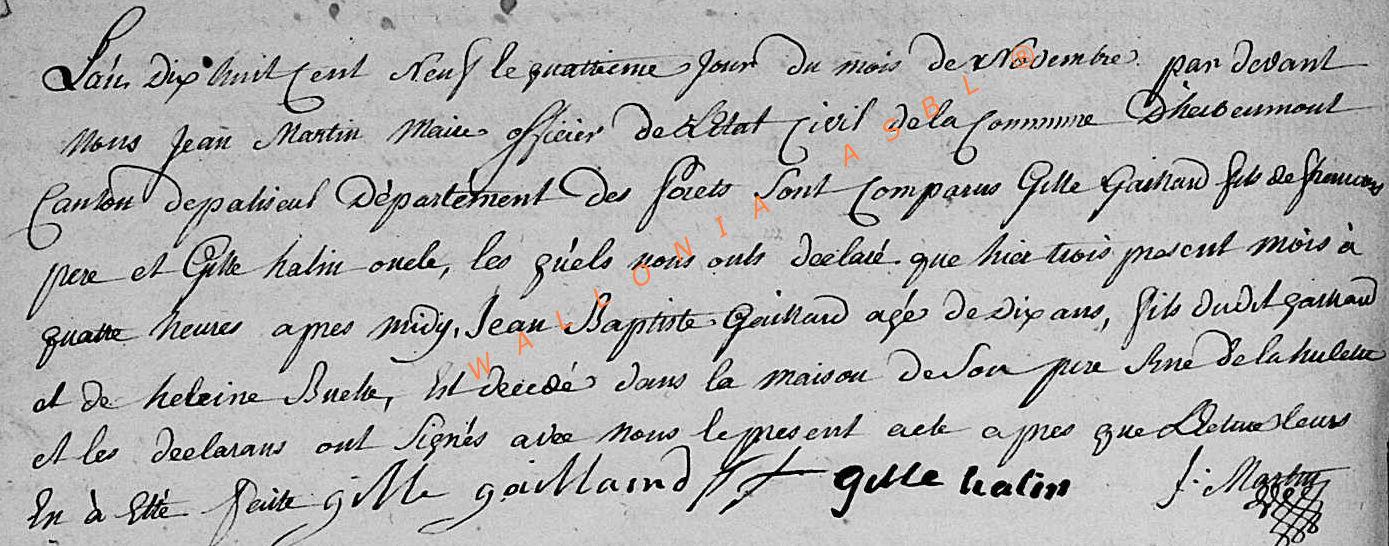 L'án dix huit cent neuf le quattrieme jour du mois de Novembre. par devant
nous Jean Martin Maire officier de L'Etat Civil de la Commune D'herbeumont
Canton depaliseul Département des forets sont comparus Gille Gaillard fils de
pere et Gille halin oncle, les quéls nous onts declaré que hier trois present mois à
quatre heures apres midy, Jean Baptiste Gaillard agé de dix ans, fils dudit gaillard
et de heleine Buelle, Est decedé dans la maison de son pere
et les declarans ont signés avec nous le present acte apres que Lecture leurs
En à Eté faite gille gaillaird gille halin J: Martin
WALLONIA ASBL ®